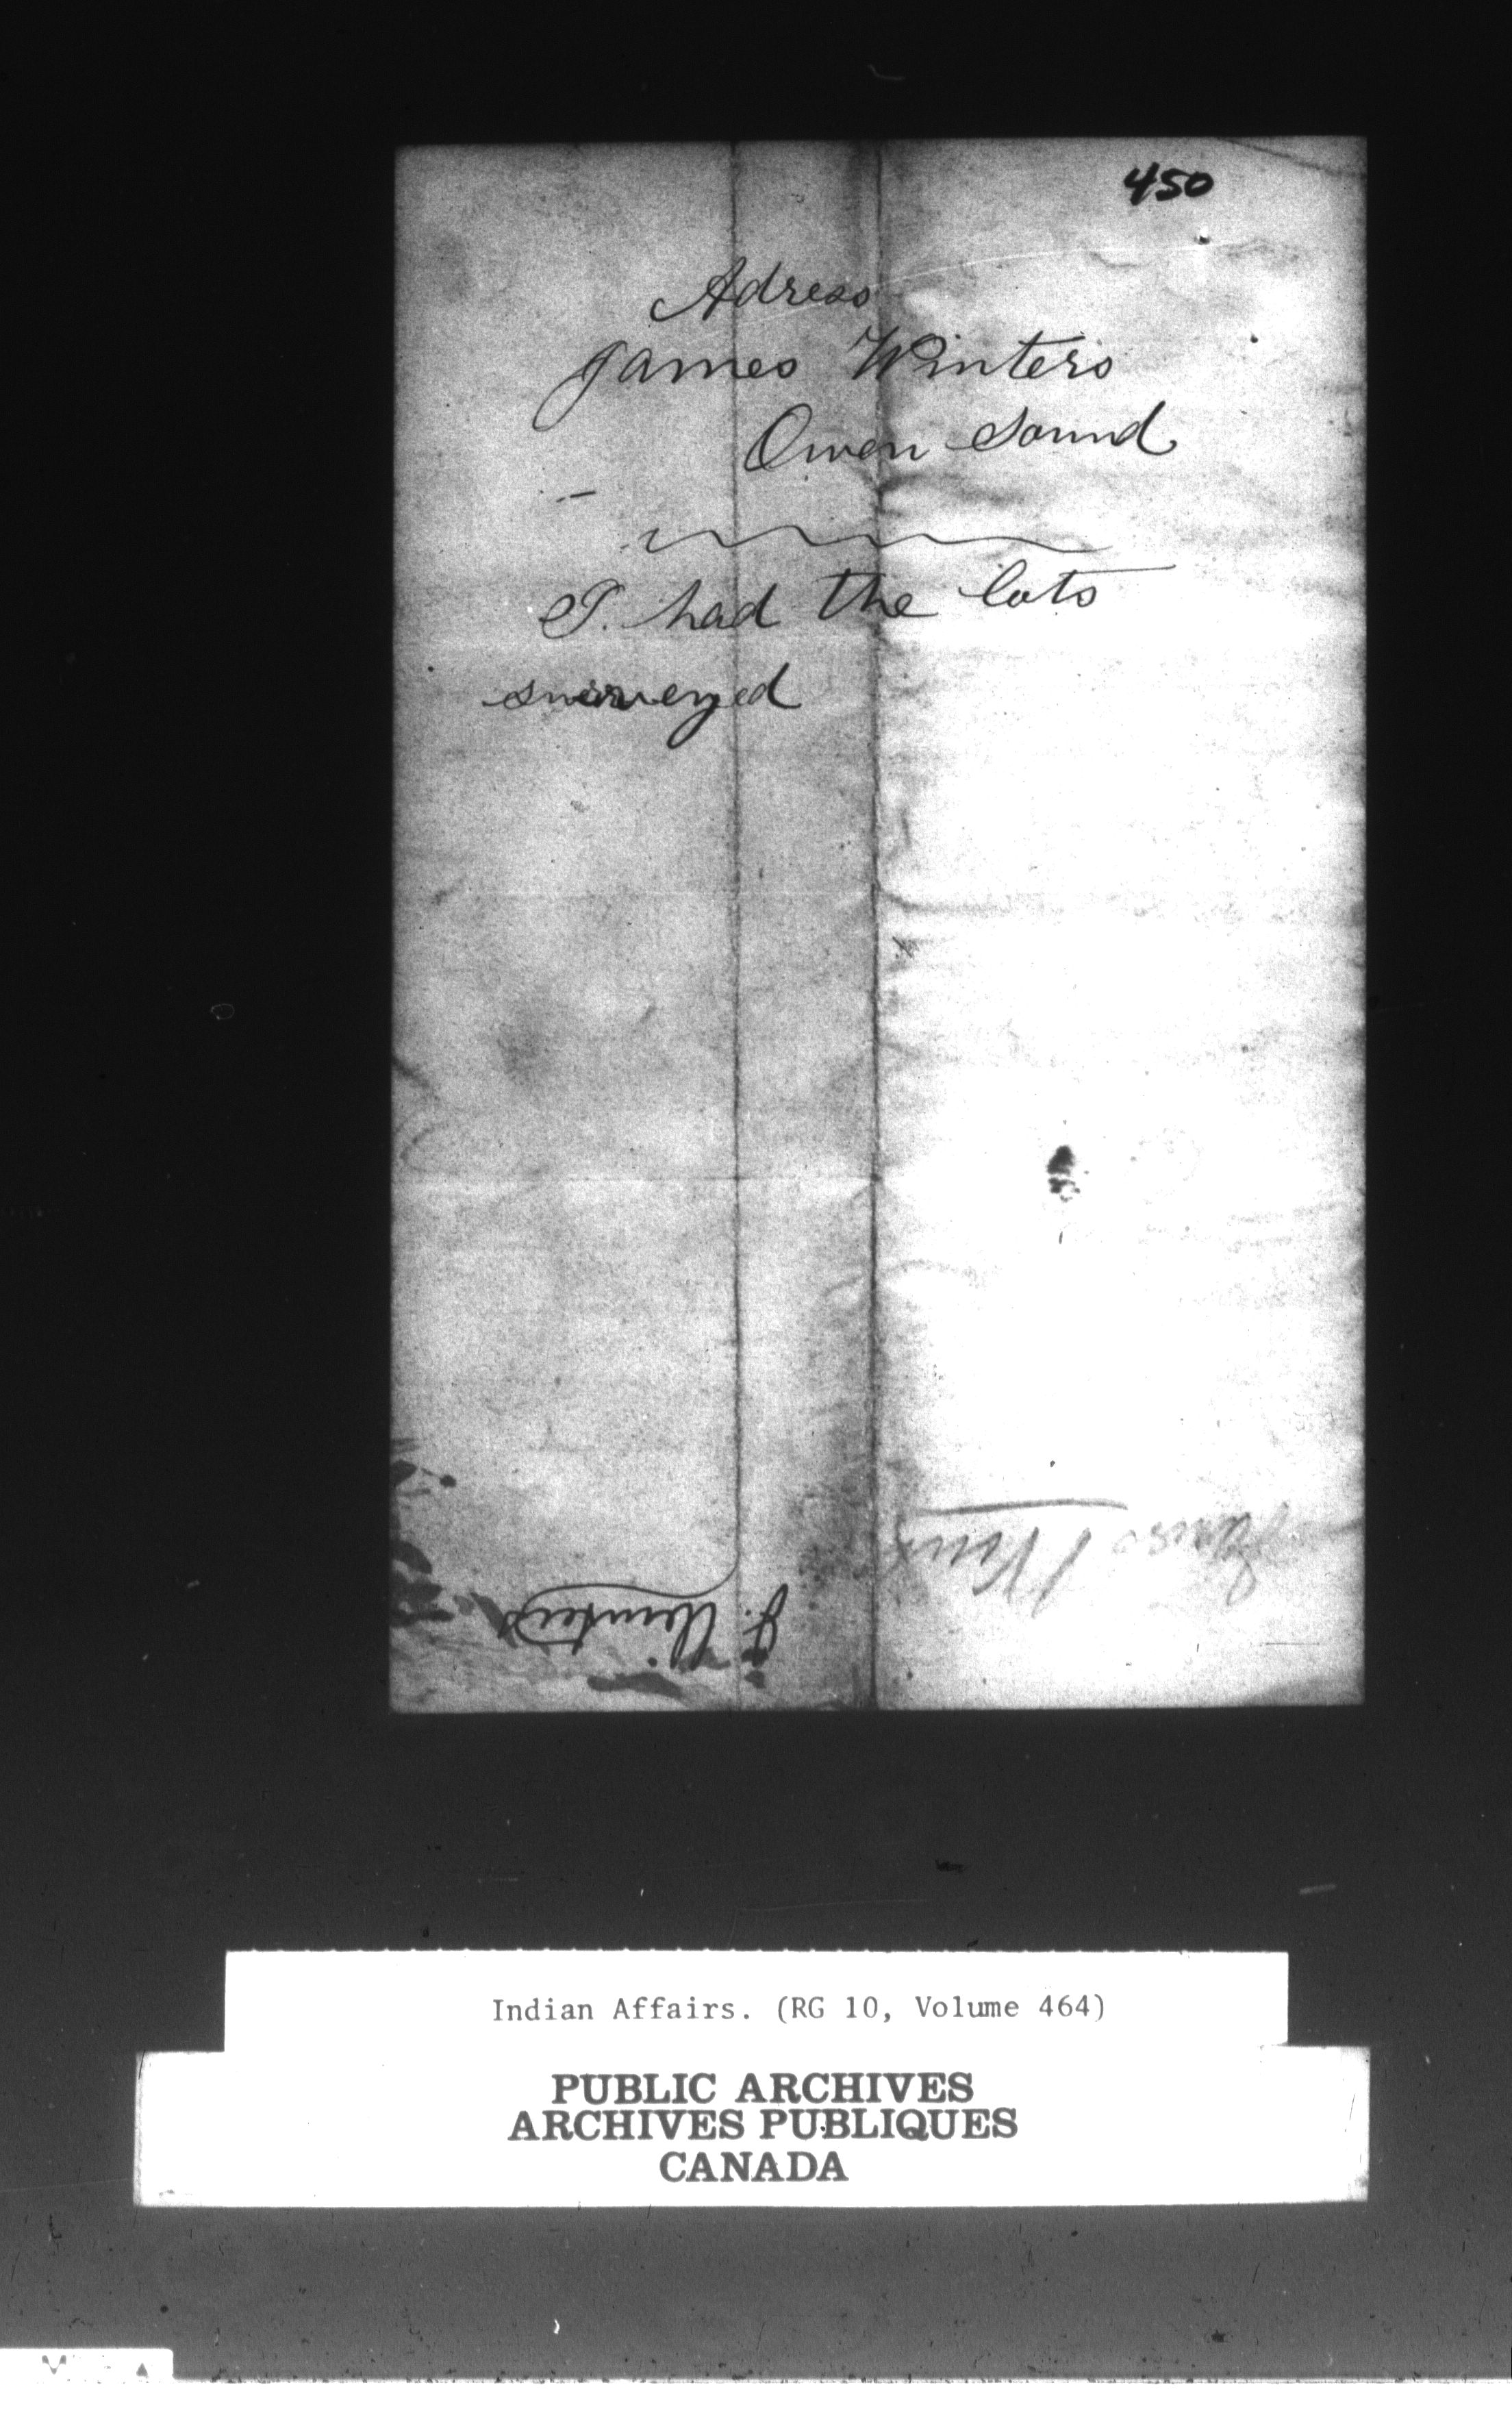 450
Adress
James Winters
Owen Sound
I. had the lots
surveyed
James
J. Winters
Indian Affairs. (RG 10, Volume 464)
PUBLIC ARCHIVES
ARCHIVES PUBLIQUES
CANADA